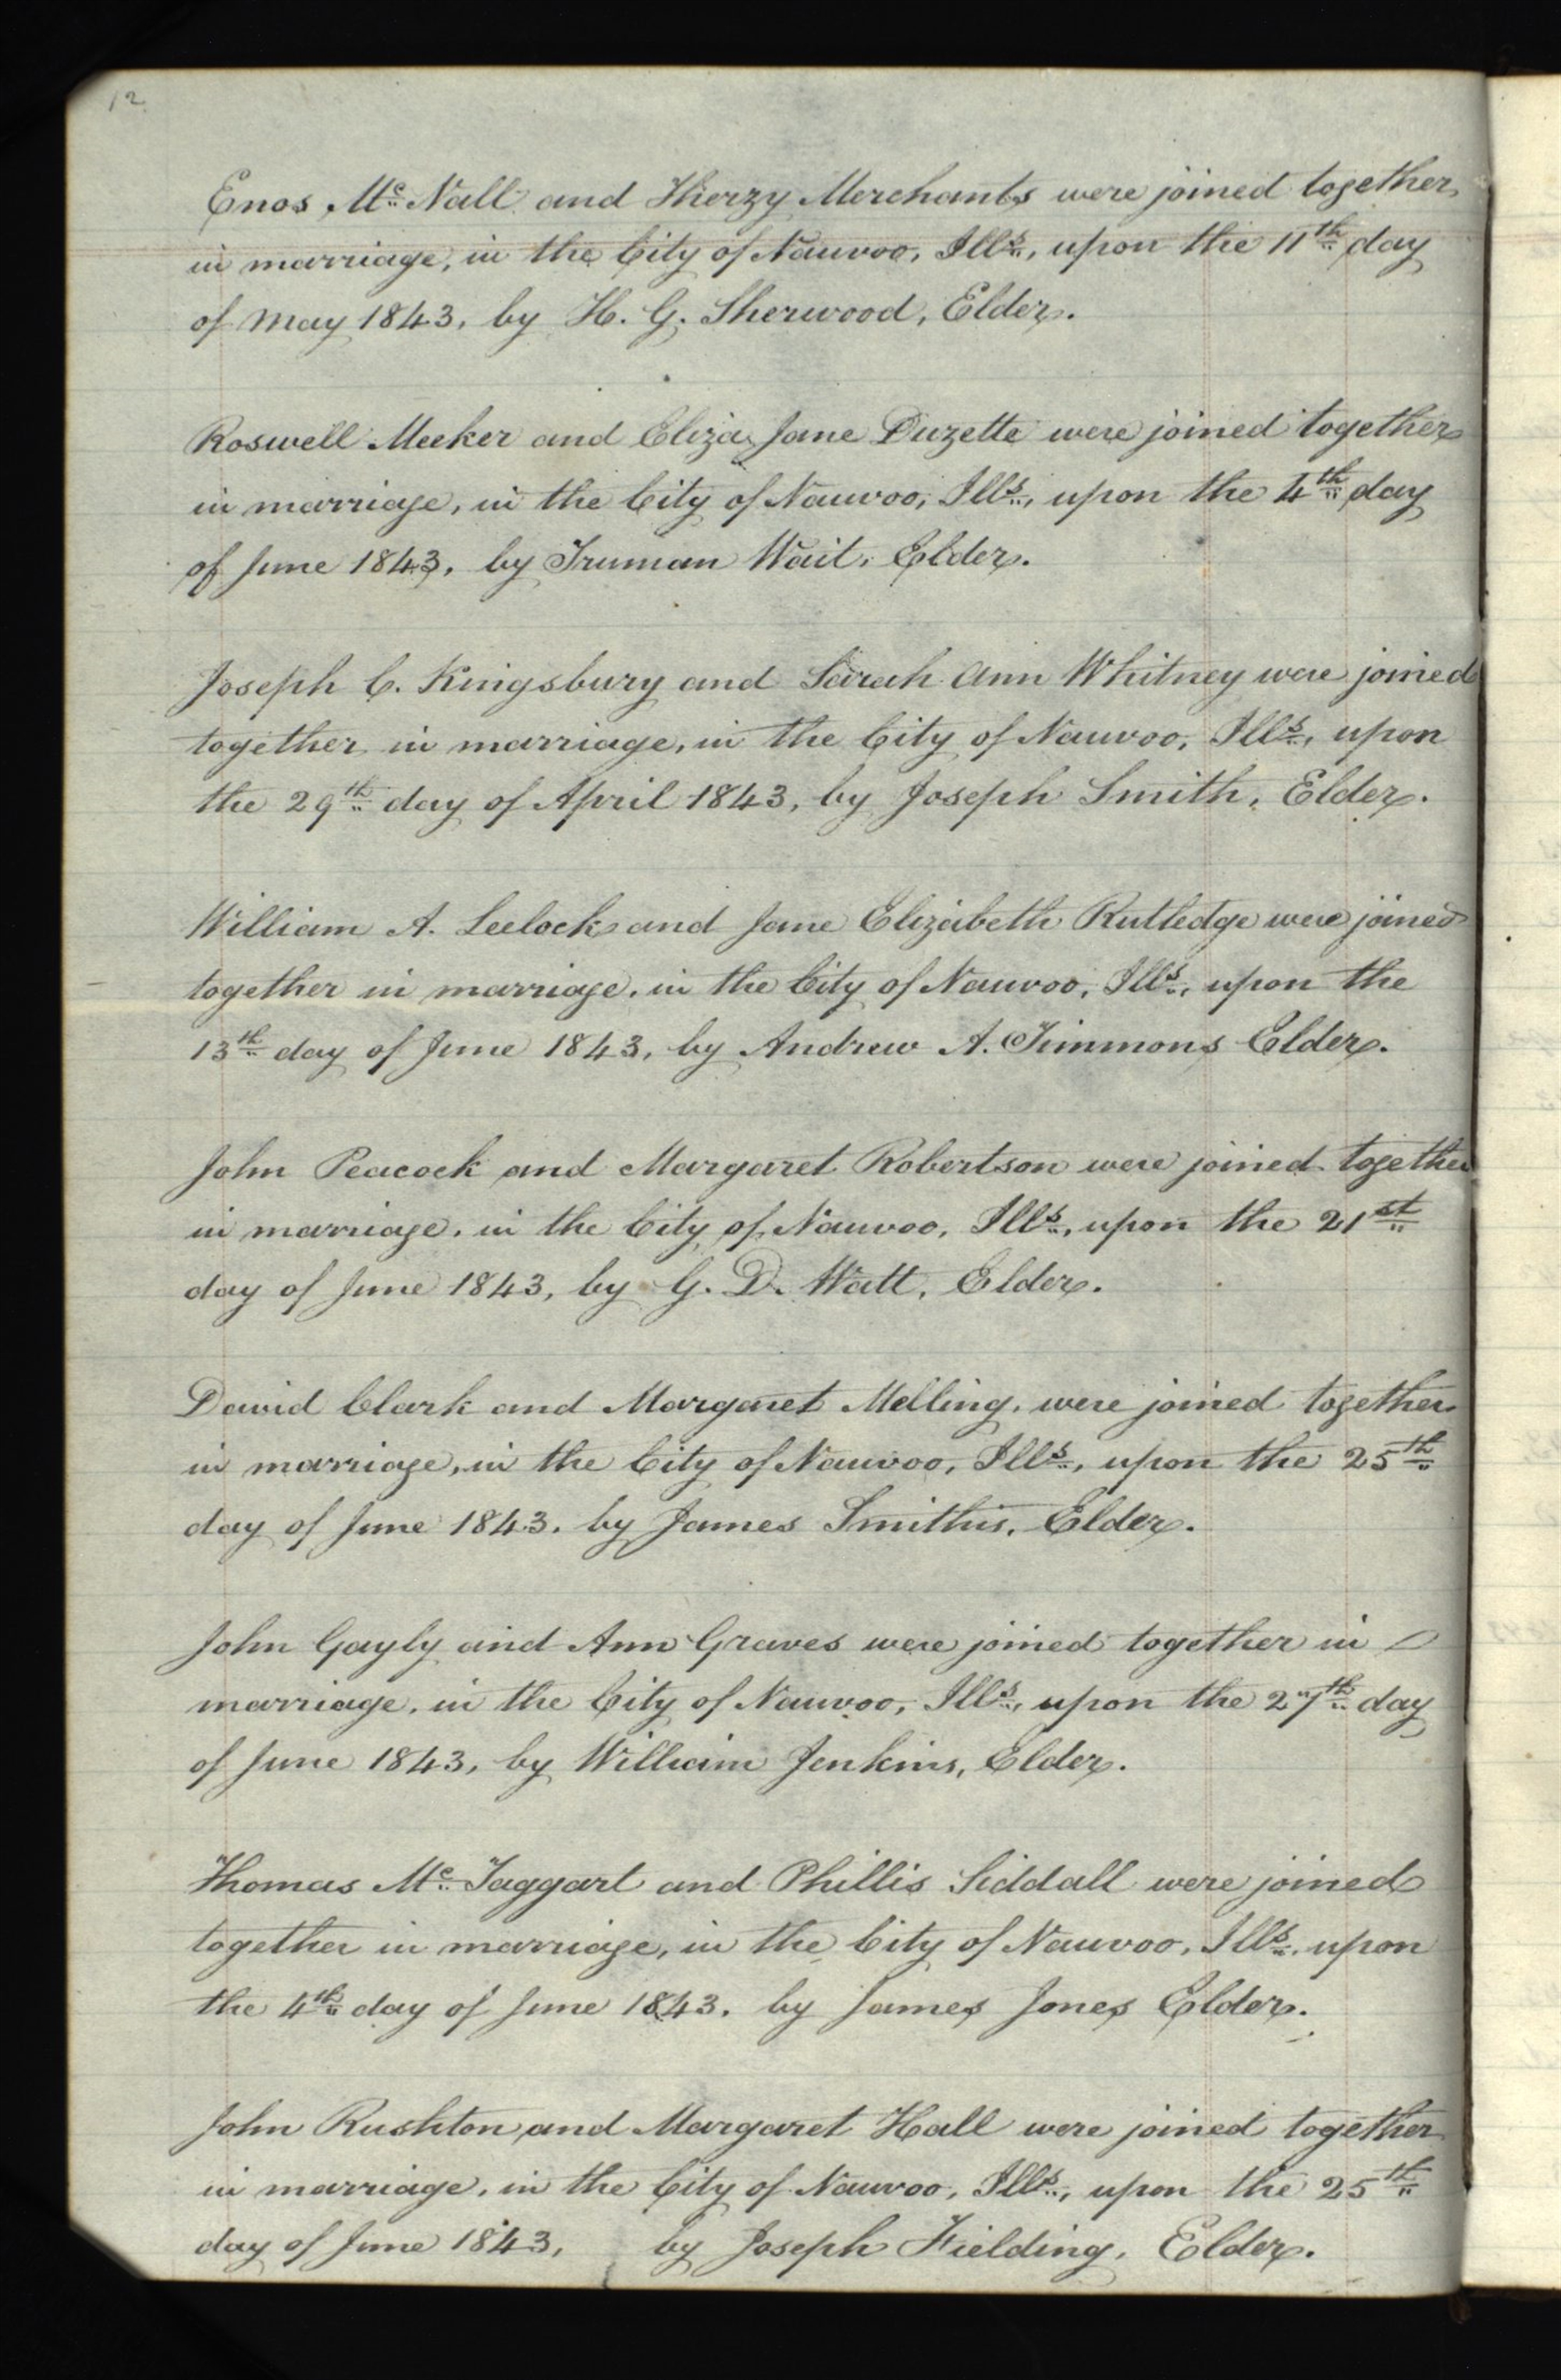 12
Enos Mc. Nall and Therzy Merchants were joined together
in marriage, in the City of Nauvoo, Ills., upon the 11th day
of May 1843, by H. G. Sherwood, Elder.
Roswell Meeker and Eliza Jane Duzette were joined together
in marriage, in the City of Nauvoo, Ills., upon the 4th day
of June 1843, by Truman Wait, Elder.
Joseph C. Kingsbury and Sarah Ann Whitney were joined
together in marriage, in the City of Nauvoo, Ills., upon
the 29th day of April 1843, by Joseph Smith, Elder.
William A. Leelock and Jane Elizabeth Rutledge were joined
together in marriage, in the City of Nauvoo, Ills., upon the
13th day of June 1843, by Andrew A. Timmons Elder.
John Peacock and Margaret Robertson were joined together
in marriage, in the City of Nauvoo, Ills., upon the 21st
day of June 1843, by G. D. Watt, Elder.
David Clark and Margaret Melling, were joined together
in marriage, in the City of Nauvoo, Ills., upon the 25th
day of June 1843, by James Smithis, Elder.
John Gayly and Ann Graves were joined together in
marriage, in the City of Nauvoo, Ills., upon the 27th day
of June 1843, by William Jenkins, Elder.
Thomas Mc. Taggart and Phillis Siddall were joined
together in marriage, in the City of Nauvoo, Ills., upon
the 4th day of June 1843, by James Jones Elder.
John Rushton and Margaret Hall were joined together
in marriage, in the City of Nauvoo, Ills., upon the 25th
day of June 1843, by Joseph Fielding, Elder.